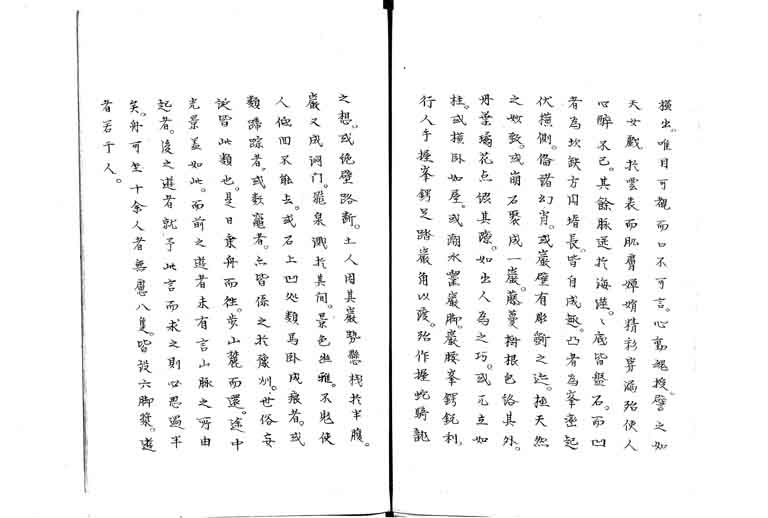 横出。唯目可觀而口不可言。心蕩魂搜。譬之如
天女戯於雲表而肌膚嬋娟精彩写漏殆使人
心醉不已。其餘脉延於海漄。々底皆盤石。而凹
者為坎欽方円增長。皆自成趣。凸者為峯巒起
伏橫側。備諸幻肖。或巖壁有彫斵之迹。極天然
之妙致。或崩石聚成一巖。藤蔓樹根包絡其外。
丹葉瑤花点缀其隙。如出人為之巧。或兀立如
柱。或橫卧如屋。或潮水囓巖脚。巖腰峯鍔鋭利。
行人手握峯鍔足踏巖角以渡。殆作握蛇騎龍
之想。或絶壁路断。土人因其巖勢懸棧於半腹。
巖又成洞门。飛泉溅於其间。景色幽雅。不覚使
人低回不能去。或石上凹处類馬卧成痕者。或
類蹄踪者。或数竈者。点皆係之於豫州。世俗妄
誕皆此類也。是日乘舟而往。步山麓而還。途中
光景盖如此。而前之遊者未有言山脉之所由
起者。後之遊者就予此言而求之則必思過半
矣。舟可坐十余人者無慮八隻。皆設六脚槳。遊
者若于人。